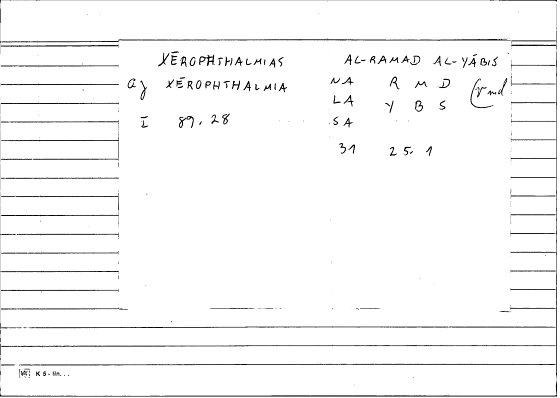 XĒROPHTHALMIAS AL-RAMAD AL-YĀBIS
XĒROPHTHALMIA NA R M D
LA Y B S
I 89, 28 SA
31 25. 1
K 5 - lin...